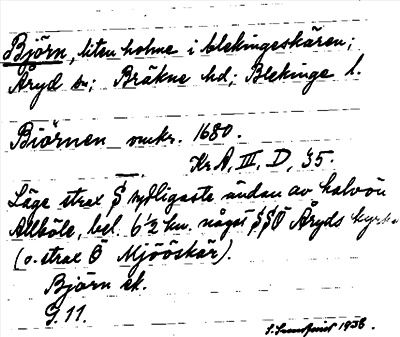 Björn, liten holme i blekingeskären;
Åryd sn; Bräkne hd; Blekinge l.
Biörnen omkr. 1680.
Kr A, III, D, 35.
Läge strax S sydligaste udden av halvön
Allhöle, bel. 6½ km. något SSÖ Åryds kyrka
(o. strax Ö Mjööskär).
Björn ek.
G. 11.
1938.